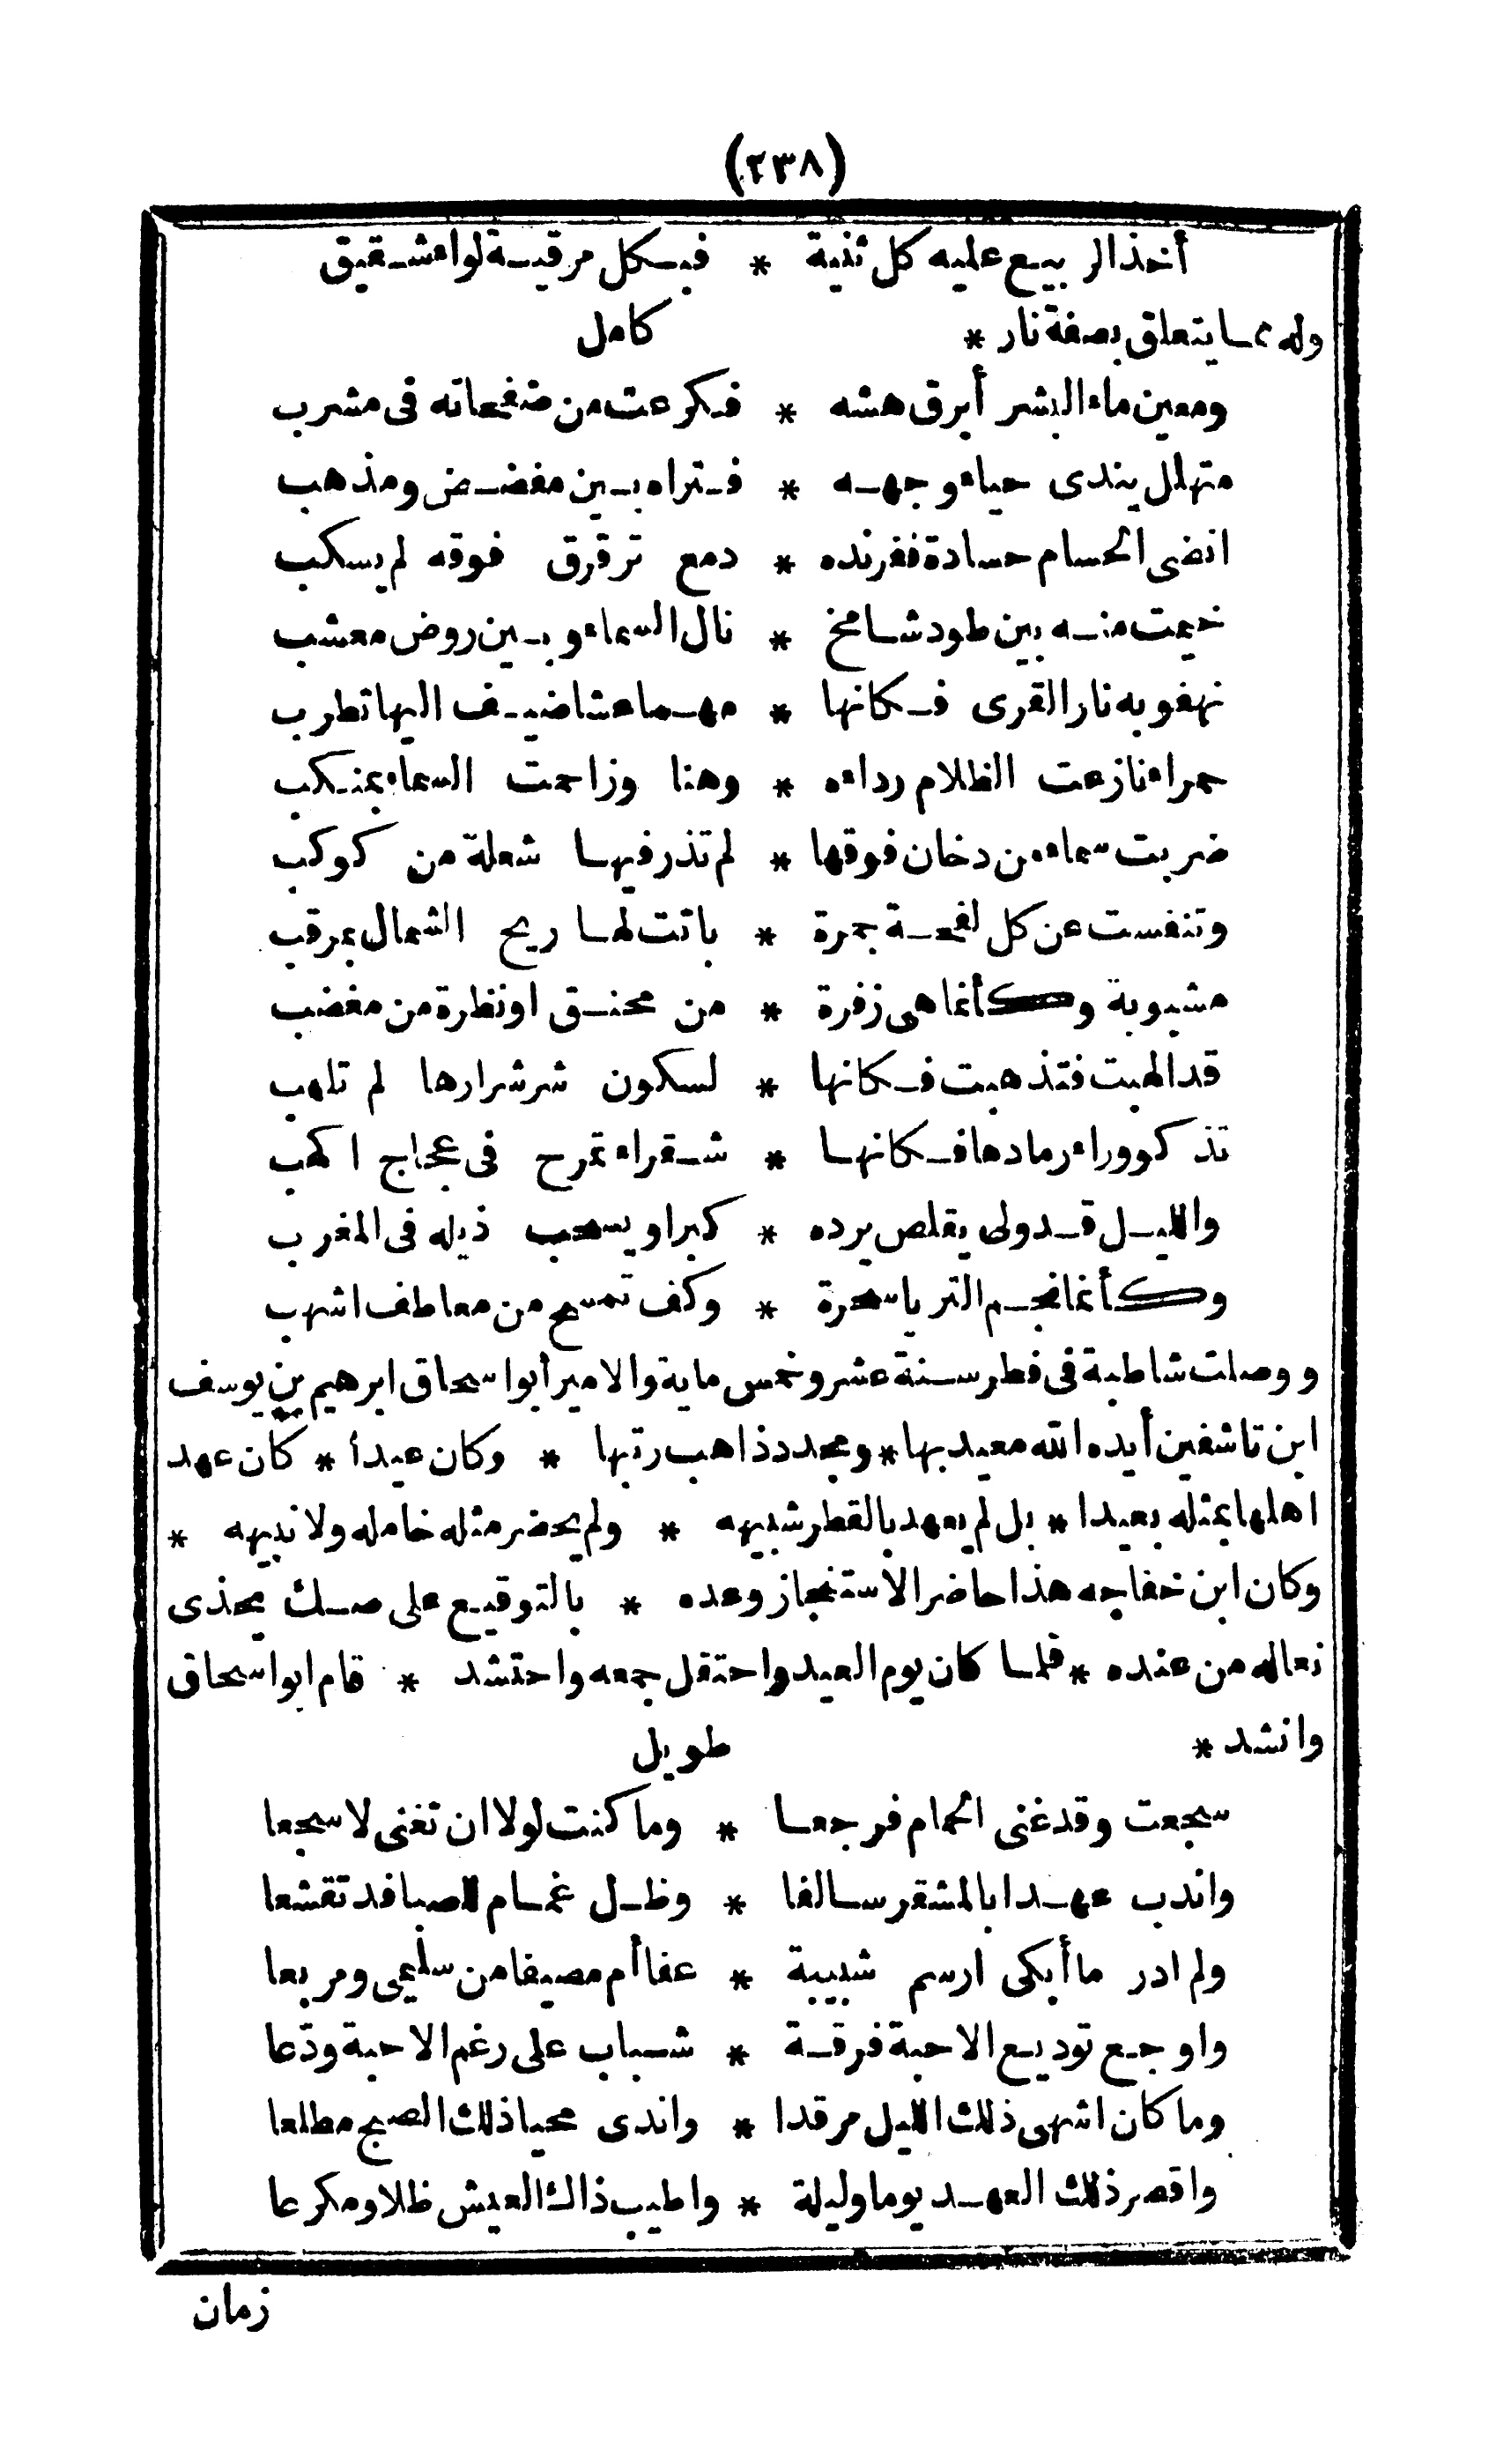 (٢٣٨)
أخذ الربيع عليه كل ثنية * فبكل مرقبة لواء شقيق
وله مما يتعلق بصفة نار * كامل
ومعين ماء البشر أبرق هشه * فكرعت من صفحاته فى مشرب
متهلل يندى حياء وجهه * فتراه بين مفضض ومذهب
انضى الحسام حسادة ففرنده * دمع ترقرق فوقه لم يسكب
خيمت منه بين طود شامخ * نال السماء وبين روض معشب
نهفو به نار القرى فكانها * مهما عشا ضيف اليها تطرب
حمراء نازعت الظلام رداءه * وهنا وزاحمت السماء بمنكب
ضربت سماء من دخان فوقها * لم تذر فيها شعلة من كوكب
وتنفست عن كل لفحة جمرة * باتت لها ريح الشمال بمرقب
مشبوبة وكأنما هى زفرة * من محنق او نظرة من مغضب
قد الهبت فتذهبت فكانها * لسكون شر شرارها لم تلهب
تذكو وراء رمادها فكانها * شقراء تمرح فى عجاج اكهب
والليل قد ولى يقلص برده * كبرا ويسحب ذيله فى المغرب
وكأنما نجم الثريا سحرة * وكف تمسح من معاطف اشهب
ووصلت شاطبة فى فطر سنة عشر وخمس ماية والامير أبو اسحاق ابرهيم بن يوسف
ابن تاشفين أيده الله معيد بها * ومجدد ذاهب رتبها * وكان عيدأ * كان عهد
اهلها بمثله بعيدا * بل لم يعهد بالقطر شبيهه * ولم يحضر مثله خامله ولا نبيهه *
وكان ابن خفاجه هذا حاضر الاستنجاز وعده * بالتوقيع على صك يحذى
نعاله من عنده * فلما كان يوم العيد واحتفل جمعه واحتشد * قام ابو اسحاق
وانشد * طويل
سجعت وقد غنى الحمام فرجعا * وما كنت لولا ان تغنى لاسجعا
واندب عهدا بالمشقر سالفا * وظل غمام للصبا قد تقشعا
ولم ادر ما أبكى ارسم شبيبة * عفا أم مصيفا من سليمى ومربعا
واوجع توديع الاحبة فرقة * شباب على رغم الاحبة ودّعا
وما كان اشهى ذلك الليل مرقدا * واندى محيا ذلك الصبح مطلعا
واقصر ذلك العهد يوما وليلة * واطيب ذاك العيش ظلا ومكرعا
زمان